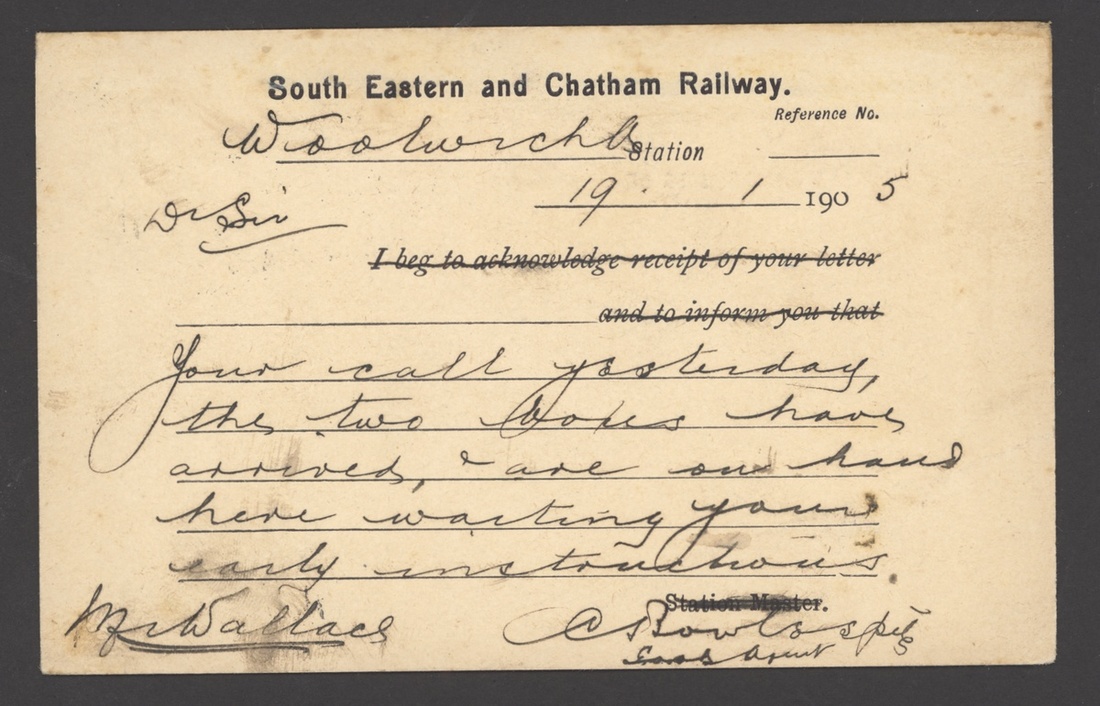 South Eastern and Chatham Railway.
Reference No.
Woolwich Station
19 . 1 1905
Dr Sir
I beg to acknowledge receipt of your letter
and to inform you that
Your call yesterday,
the two boxes have
arrived, & are on hand
here waiting your
early instructions
Station Master.
Mr Wallace
A Bowles
Goods Agent